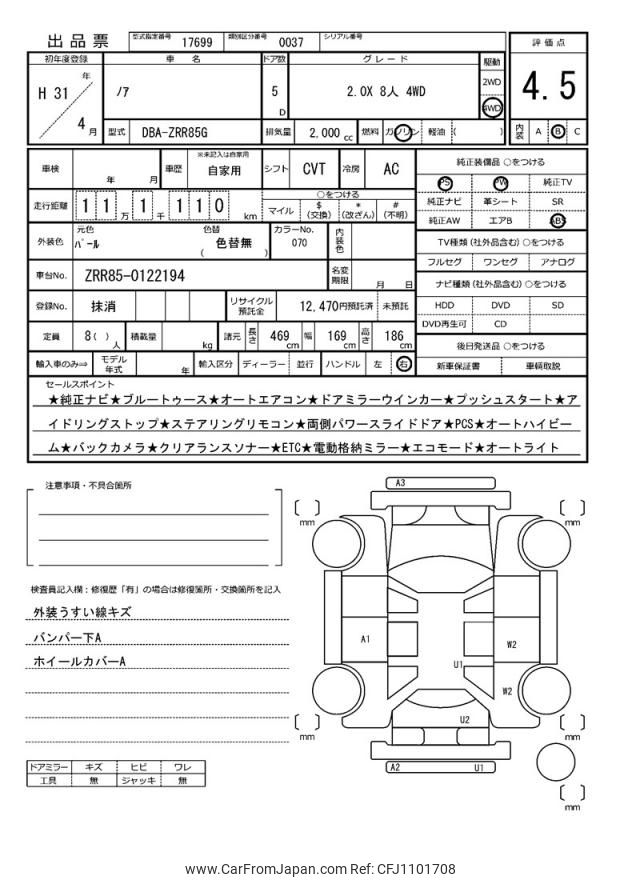 出品票
型式指定番号 17699 類別区分番号 0037 シリアル番号
評価点
4.5
初年度登録 車名 ドア数 グレード 駆動
H 31 年 4 月
ﾉｱ
5 D
2.0X 8人 4WD
2WD
4WD
型式 DBA-ZRR85G 排気量 2,000 cc 燃料 ガソリン 軽油 ( )
内装 A B C
車検 年 月 車歴 ※未記入は自家用 自家用 シフト CVT 冷房 AC
純正装備品 ○をつける
PS PW 純正TV
純正ナビ 革シート SR
純正AW エアB ABS
走行距離 11万1千110 km
○をつける
マイル $(交換) *(改ざん) #(不明)
TV種類(社外品含む)○をつける
フルセグ ワンセグ アナログ
外装色 元色 ﾊﾟｰﾙ 色替 ( 色替無 ) カラーNo. 070 内装色
ナビ種類(社外品含む)○をつける
HDD DVD SD
DVD再生可 CD
車台No. ZRR85-0122194 名変期限 月 日
登録No. 抹消 リサイクル預託金 12,470円預託済 未預託
定員 8( )人 積載量 kg 諸元 長さ 469cm 幅 169cm 高さ 186cm
後日発送品 ○をつける
新車保証書 車輌取説
輸入車のみ⇒ モデル年式 年 輸入区分 ディーラー 並行 ハンドル 左 右
セールスポイント
★純正ナビ★ブルートゥース★オートエアコン★ドアミラーウインカー★プッシュスタート★ア
イドリングストップ★ステアリングリモコン★両側パワースライドドア★PCS★オートハイビー
ム★バックカメラ★クリアランスソナー★ETC★電動格納ミラー★エコモード★オートライト
注意事項・不具合箇所
検査員記入欄：修復歴「有」の場合は修復箇所・交換箇所を記入
外装うすい線キズ
バンパー下A
ホイールカバーA
ドアミラー キズ ヒビ ワレ
工具 無 ジャッキ 無
A3
mm
mm
A1
W2
U1
W2
U2
mm
mm
A2 U1
mm
www.CarFromJapan.com Ref: CFJ1101708